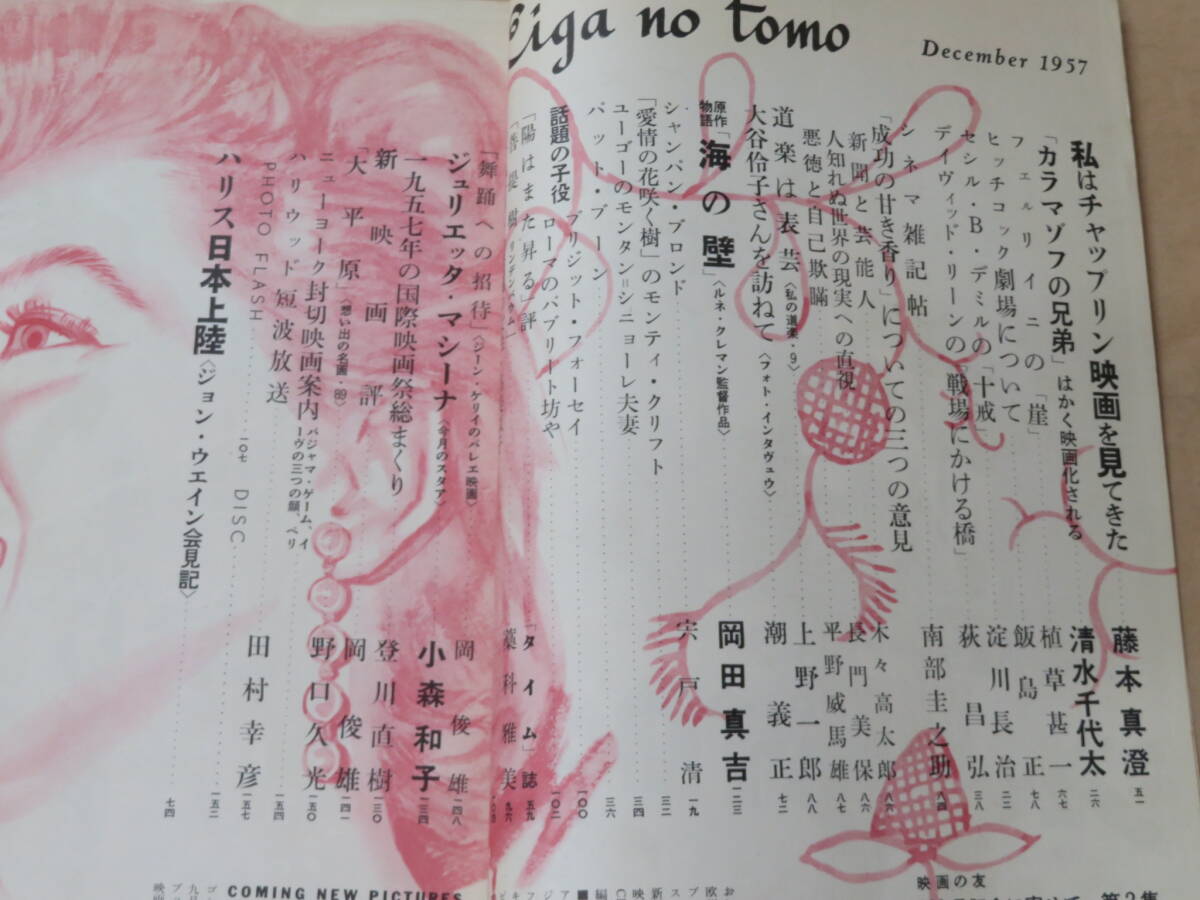 Eiga no tomo
December 1957
私はチャップリン映画を見てきた 藤本真澄 五一
「カラマゾフの兄弟」はかく映画化される 清水千代太 二六
フェルリイニの「崖」 植草甚一 六七
ヒッチコック劇場について 飯島正 七八
セシル・B・デミルの「十戒」 淀川長治 二二
デイヴィッド・リーンの「戦場にかける橋」 荻昌弘 三八
シネマ雑記帖 南部圭之助 八四
「成功の甘き香り」についての三つの意見
新聞と芸能人 木々高太郎 八六
人知れぬ世界の現実への直視 長門美保 八六
悪徳と自己欺瞞 平野威馬雄 八七
道楽は表芸〈私の道楽・9〉 上野一郎 八八
大谷伶子さんを訪ねて〈フォト・インタヴュウ〉 潮義正 七二
原作物語「海の壁」〈ルネ・クレマン監督作品〉 岡田真吉 一二三
シャンパン・ブロンド 宍戸清 一九
「愛情の花咲く樹」のモンティ・クリフト 三二
ユーゴーのモンタン=シニョーレ夫妻 三四
パット・ブーン 三六
話題の子役
ブリジット・フォーセイ 一〇〇
ローマのパブリート坊や 一〇二
「陽はまた昇る」評 「タイム」誌 五九
「菩提樹」 藁科雅美 九六
「舞踊への招待」〈ジーン・ケリイのバレエ映画〉 岡俊雄 一四八
ジュリエッタ・マシーナ〈今月のスタア〉 小森和子 一三四
一九五七年の国際映画祭総まくり 登川直樹 一三〇
新映画評
「大平原」〈想い出の名画・89〉 岡俊雄 一四一
ニューヨーク封切映画案内 パジャマ・ゲーム、イーヴの三つの顔、ベリ 野口久光 一五〇
ハリウッド短波放送 一五四
PHOTO FLASH 一〇七 DISC 田村幸彦 一五七
一五二
ハリス日本上陸〈ジョン・ウェイン会見記〉 七四
COMING NEW PICTURES
映画の友
第2集